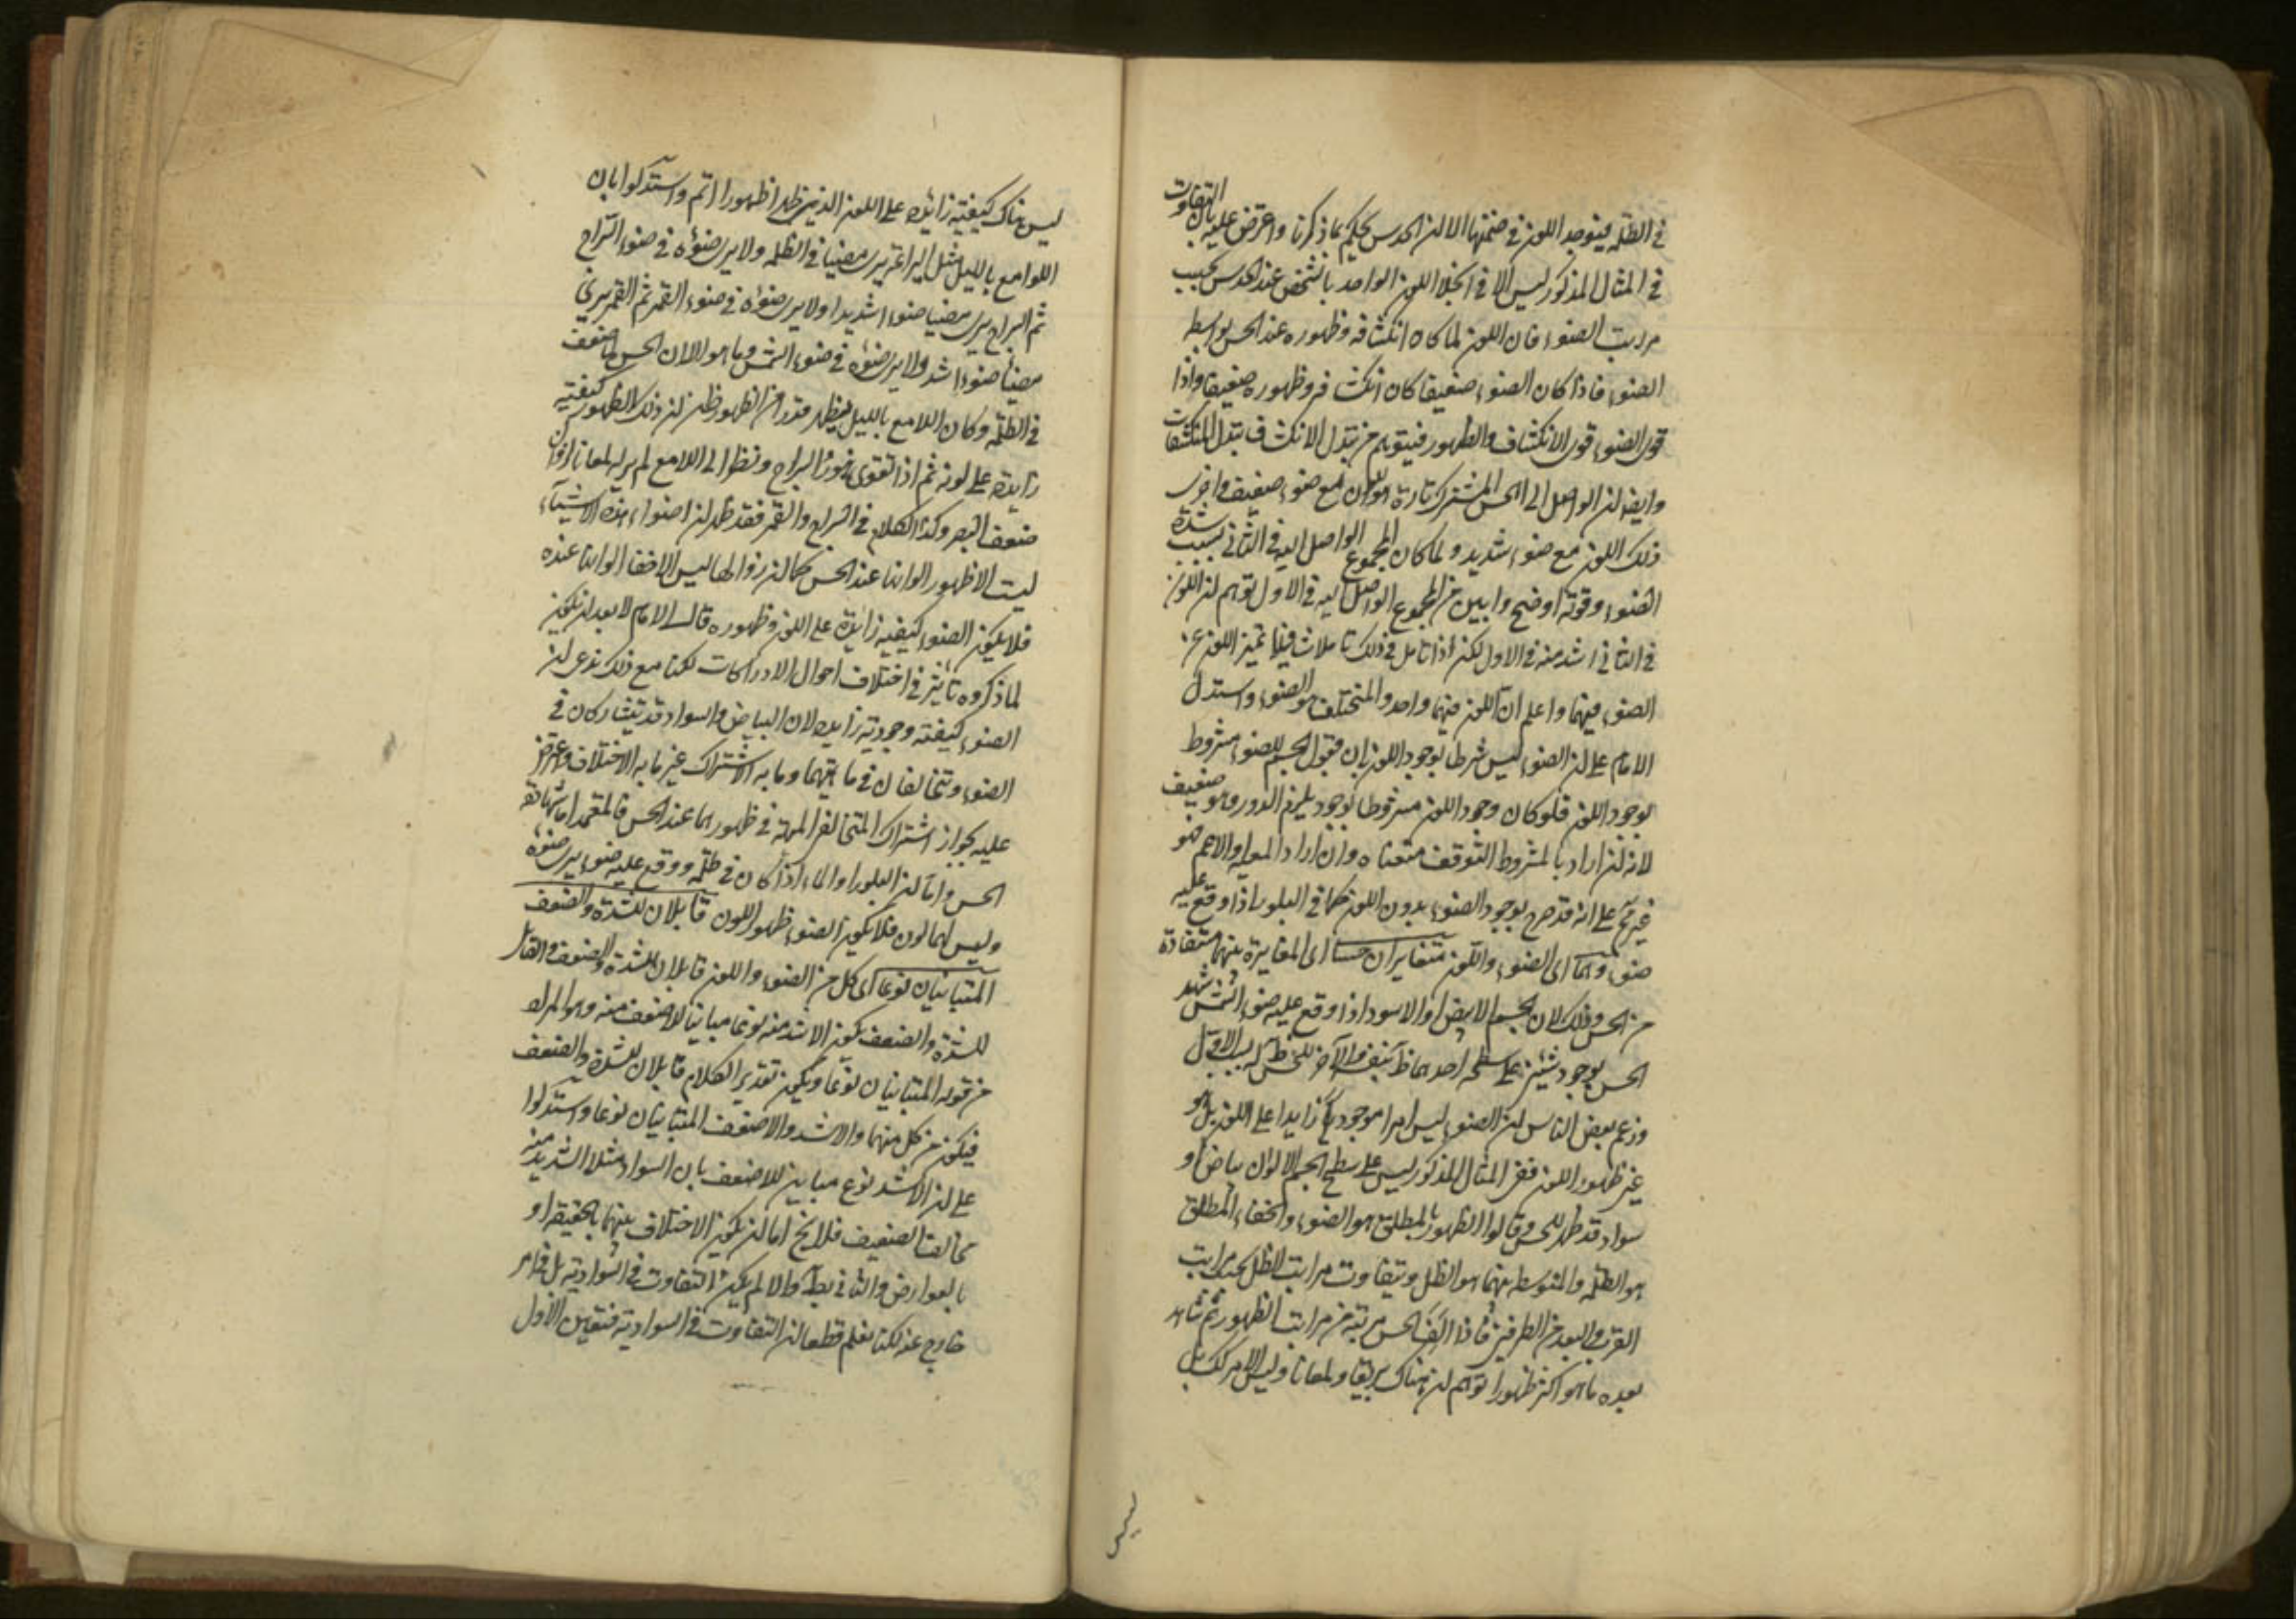 في الظلمة ينوجد اللون في ضمنها الا ان الحدس يحكم بما ذكرنا واعترض عليه بان التفاوت
في المثال المذكور ليس الا في انجلاء اللون الواحد بالشخص عند الحس بحسب
مراتب الضوء فان اللون لما كان انكشافه وظهوره عند الحس بواسطه
الضوء فاذا كان الضوء ضعيفا كان انكشافه وظهوره ضعيفا واذا
قوى الضوء قوى الانكشاف والظهور فيتوهم من تبدل الانكشاف تبدل المنكشفات
وايضا ان الواصل الى الحس المشترك تارة هو اللون مع ضوء ضعيف واخرى
ذلك اللون مع ضوء شديد ولما كان المجموع الواصل اليه في الثاني بسبب شدة
الضوء وقوته اوضح وابين من المجموع الواصل اليه في الاول توهم ان اللون
في الثاني اشد منه في الاول لكن اذا تامل في ذلك تاملا شافيا تميز اللون عن
الضوء فيهما واعلم ان اللون فيهما واحد والمختلف هو الضوء واستدل
الامام على ان الضوء ليس شرطا لوجود اللون بان قبول الجسم للضوء مشروط
بوجود اللون فلو كان وجود اللون مشروطا بوجوده يلزم الدور وهو ضعيف
لانه ان اراد بالمشروط التوقف منعناه وان اراد المعية والاعم فهو
غير مح على انه قد صرح بوجود الضوء بدون اللون كما في البلور اذا وقع عليه
ضوء وهما اى الضوء واللون متغايران حسا اى المغايرة بينهما مستفادة
من الحس وذلك لان الجسم الابيض او الاسود اذا وقع عليه ضوء الشمس شهد
الحس بوجود شيئين على سطحه احدهما ظاهر بنفسه والآخر للحس بسبب الاول
وزعم بعض الناس ان الضوء ليس امرا موجودا زايدا على اللون بل هو
عين ظهور اللون ففى المثال المذكور ليس على سطح الجسم الا لون بياض او
سواد قد ظهر للحس وقالوا الظهور المطلق هو الضوء والخفاء المطلق
هو الظلمة والمتوسط بينهما هو الظل وتتفاوت مراتب الظل بحسب مراتب
القرب والبعد من الطرفين فاذا الف الحس مرتبة من مراتب الظهور ثم شاهد
بعده ما هو اكثر ظهورا توهم ان هناك بريقا ولمعانا وليس الامر كك بل
ليس
ليس هناك كيفية زايدة على اللون الذى ظهر ظهورا اتم واستدلوا بان
اللوامع بالليل مثل اليراعة يرى مضيئا في الظلمة ولا يرى ضوءه في ضوء السراج
ثم السراج يرى مضيئا ضوءا شديدا ولا يرى ضوءه في ضوء القمر ثم القمر يرى
مضيئا ضوءا اشد ولا يرى ضوءه في ضوء الشمس وما هو الا لان الحس لما ضعف
في الظلمة وكان اللامع بالليل يظهر قدرا من الظهور ظن ان ذلك الظهور كيفية
زايدة على لونه ثم اذا تقوى بنور السراج ونظر الى اللامع لم ير له لمعانا لزوال
ضعف البصر وكذا الكلام في السراج والقمر فقد ظهر ان اضواء هذه الاشياء
ليست الا ظهور الوانها عند الحس كما ان زوالها ليس الا خفاء الوانها عنده
فلا يكون الضوء كيفية زايدة على اللون وظهوره قال الامام لا بعد ان يكون
لما ذكروه تاثير في اختلاف احوال الادراكات لكنا مع ذلك ندعى ان
الضوء كيفية وجودية زايدة لان البياض والسواد قد يتشاركان في
الضوء ويتخالفان في ماهيتهما وما به الاشتراك غير ما به الاختلاف واعترض
عليه بجواز اشتراك المتخالفين بالماهية في ظهورهما عند الحس فالمعتمد اما شهادة
الحس واما ان البلور او الماء اذا كان في ظلمة ووقع عليه ضوء يرى ضوءه
وليس لهما لون فلا يكون الضوء ظهور اللون قابلان للشدة والضعف
المتباينان نوعا اى كل من الضوء واللون قابلان للشدة والضعف والقابل
للشدة والضعف يكون الاشد منه نوعا مباينا للاضعف منه وهو المراد
من قوله المتباينان نوعا ويكون تقدير الكلام قابلان للشدة والضعف
فيكون من كل منهما والاشد والاضعف المتباينان نوعا واستدلوا
على ان الاشد نوع مباين للاضعف بان السواد مثلا الشديد منه
مخالفا لضعيف فلا يخ اما ان يكون الاختلاف بينهما بالحقيقة او
بالعوارض والثاني بط والا لم يكن التفاوت في السوادية بل في امر
خارج عنه لكنا نعلم قطعا ان التفاوت في السوادية فتعين الاول